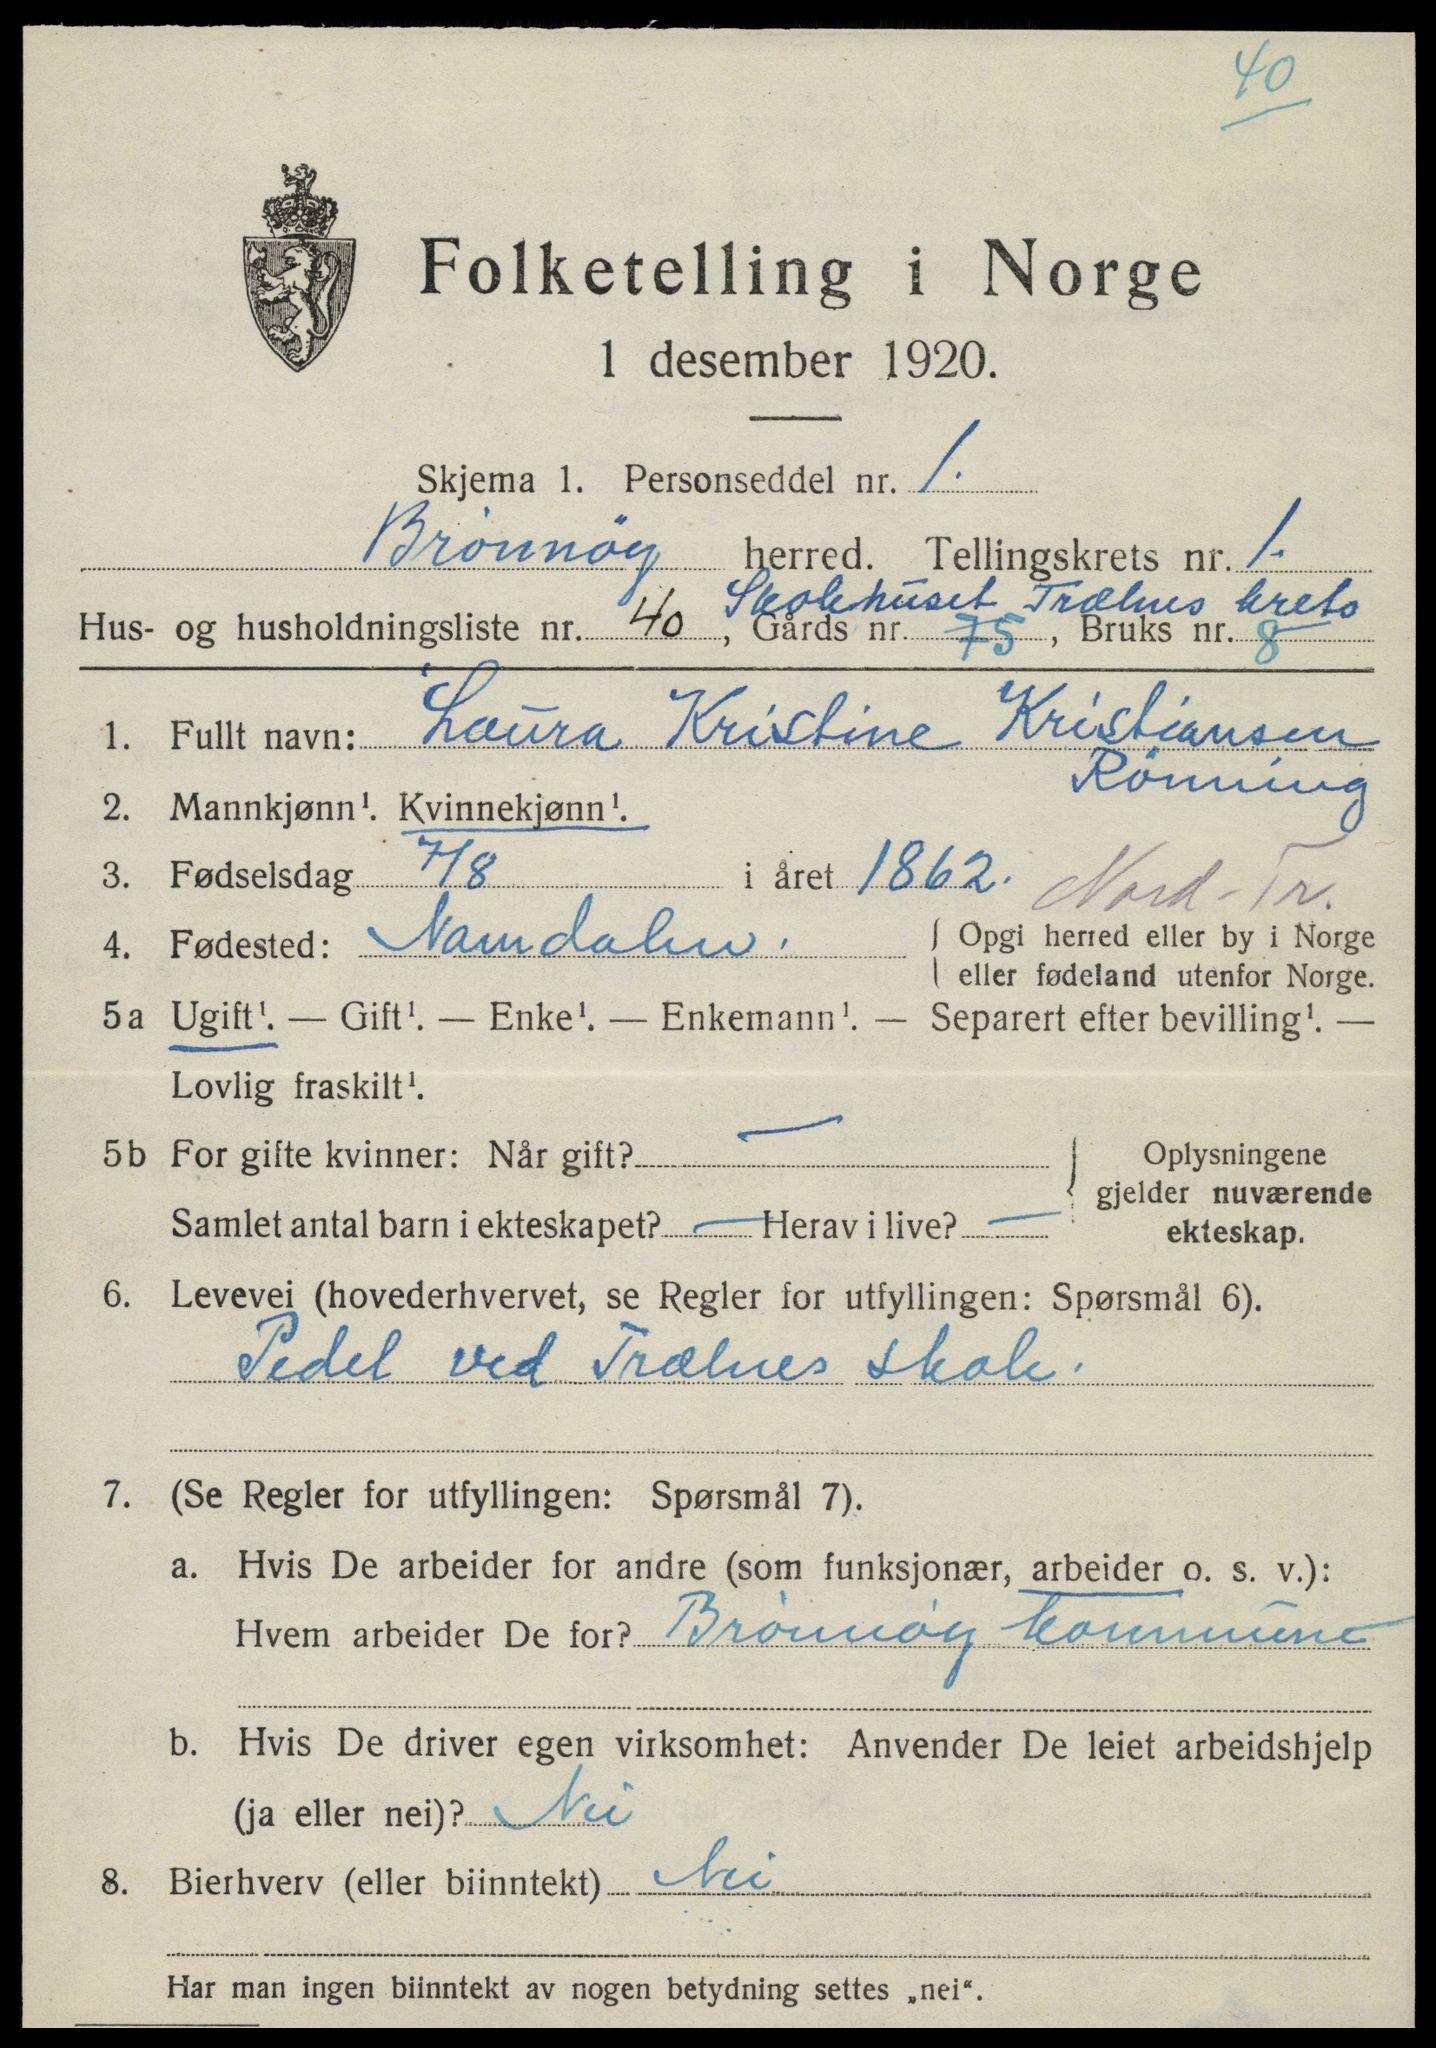 40
Folketelling i Norge
1 desember 1920.
Skjema 1. Personseddel nr. 1.
Brönnöy herred. Tellingskrets nr. 1.
Skolehuset Trælnes krets
Hus- og husholdningsliste nr. 40, Gårds nr. 75, Bruks nr. 8
1. Fullt navn: Laura Kristine Kristiansen
Rönning
2. Mannkjønn¹. Kvinnekjønn¹.
3. Fødselsdag 7/8 i året 1862. Nord-Tr.
4. Fødested: Namdalen. { Opgi herred eller by i Norge
eller fødeland utenfor Norge.
5a Ugift¹. — Gift¹. — Enke¹. — Enkemann¹. — Separert efter bevilling¹. —
Lovlig fraskilt¹.
5b For gifte kvinner: Når gift? — } Oplysningene
gjelder nuværende
Samlet antal barn i ekteskapet? — Herav i live? — ekteskap.
6. Levevei (hovederhvervet, se Regler for utfyllingen: Spørsmål 6).
Pedel ved Trælnes skole.
7. (Se Regler for utfyllingen: Spørsmål 7).
a. Hvis De arbeider for andre (som funksjonær, arbeider o. s. v.):
Hvem arbeider De for? Brönnöy kommune
b. Hvis De driver egen virksomhet: Anvender De leiet arbeidshjelp
(ja eller nei)? Nei
8. Bierhverv (eller biinntekt) Nei
Har man ingen biinntekt av nogen betydning settes „nei“.